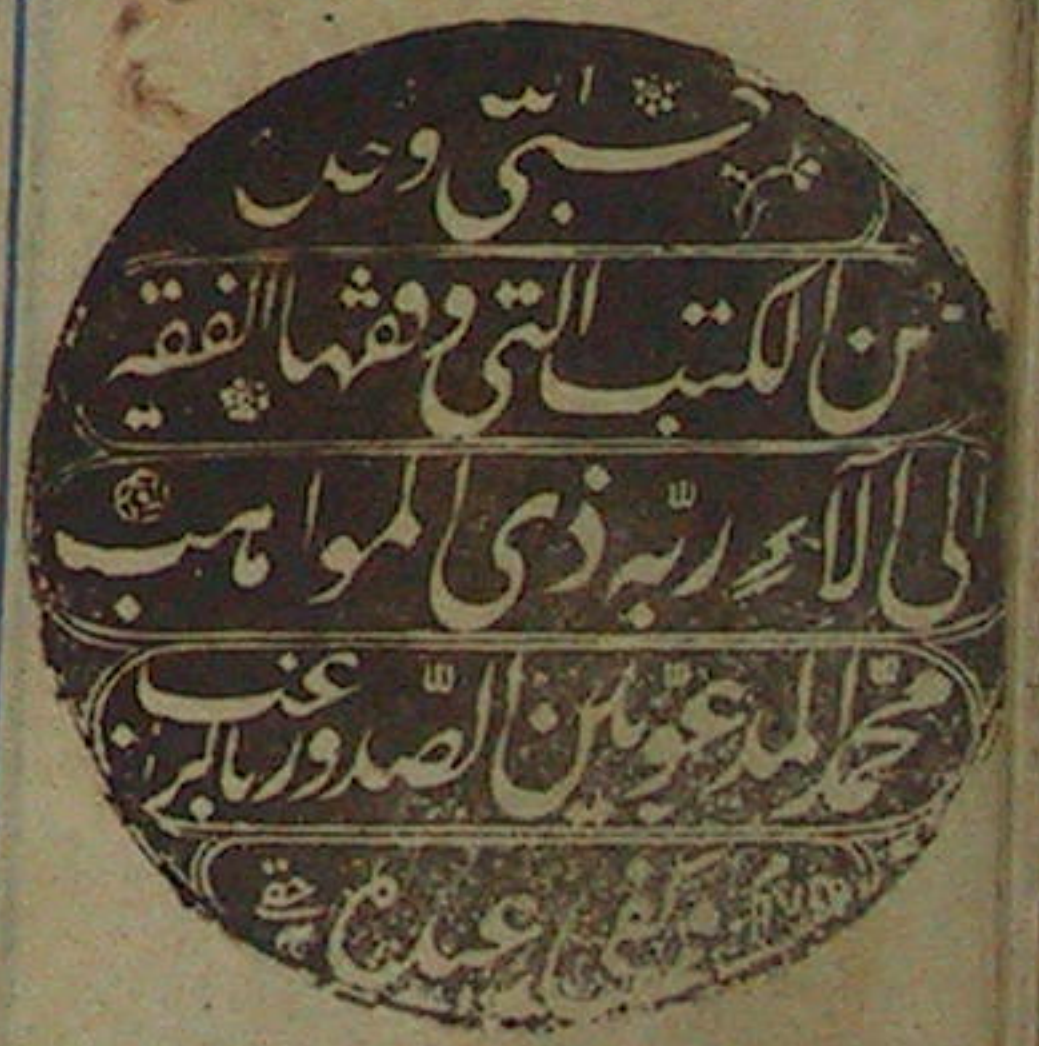 حسبي الله وحده
من الكتب التي وقفها الفقير
الى آلاء ربّه ذى المواهب
محمّد المدعوّ بين الصّدور بالراغب
عبده